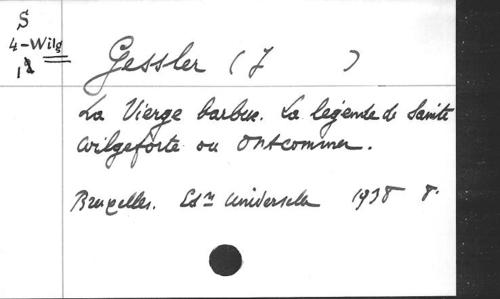 S
4-Wilg
Gessler (J )
La Vierge barbue. La légende de Sainte
Wilgeforte ou Ontcommer.
Bruxelles. Edns Universelle 1938 8.